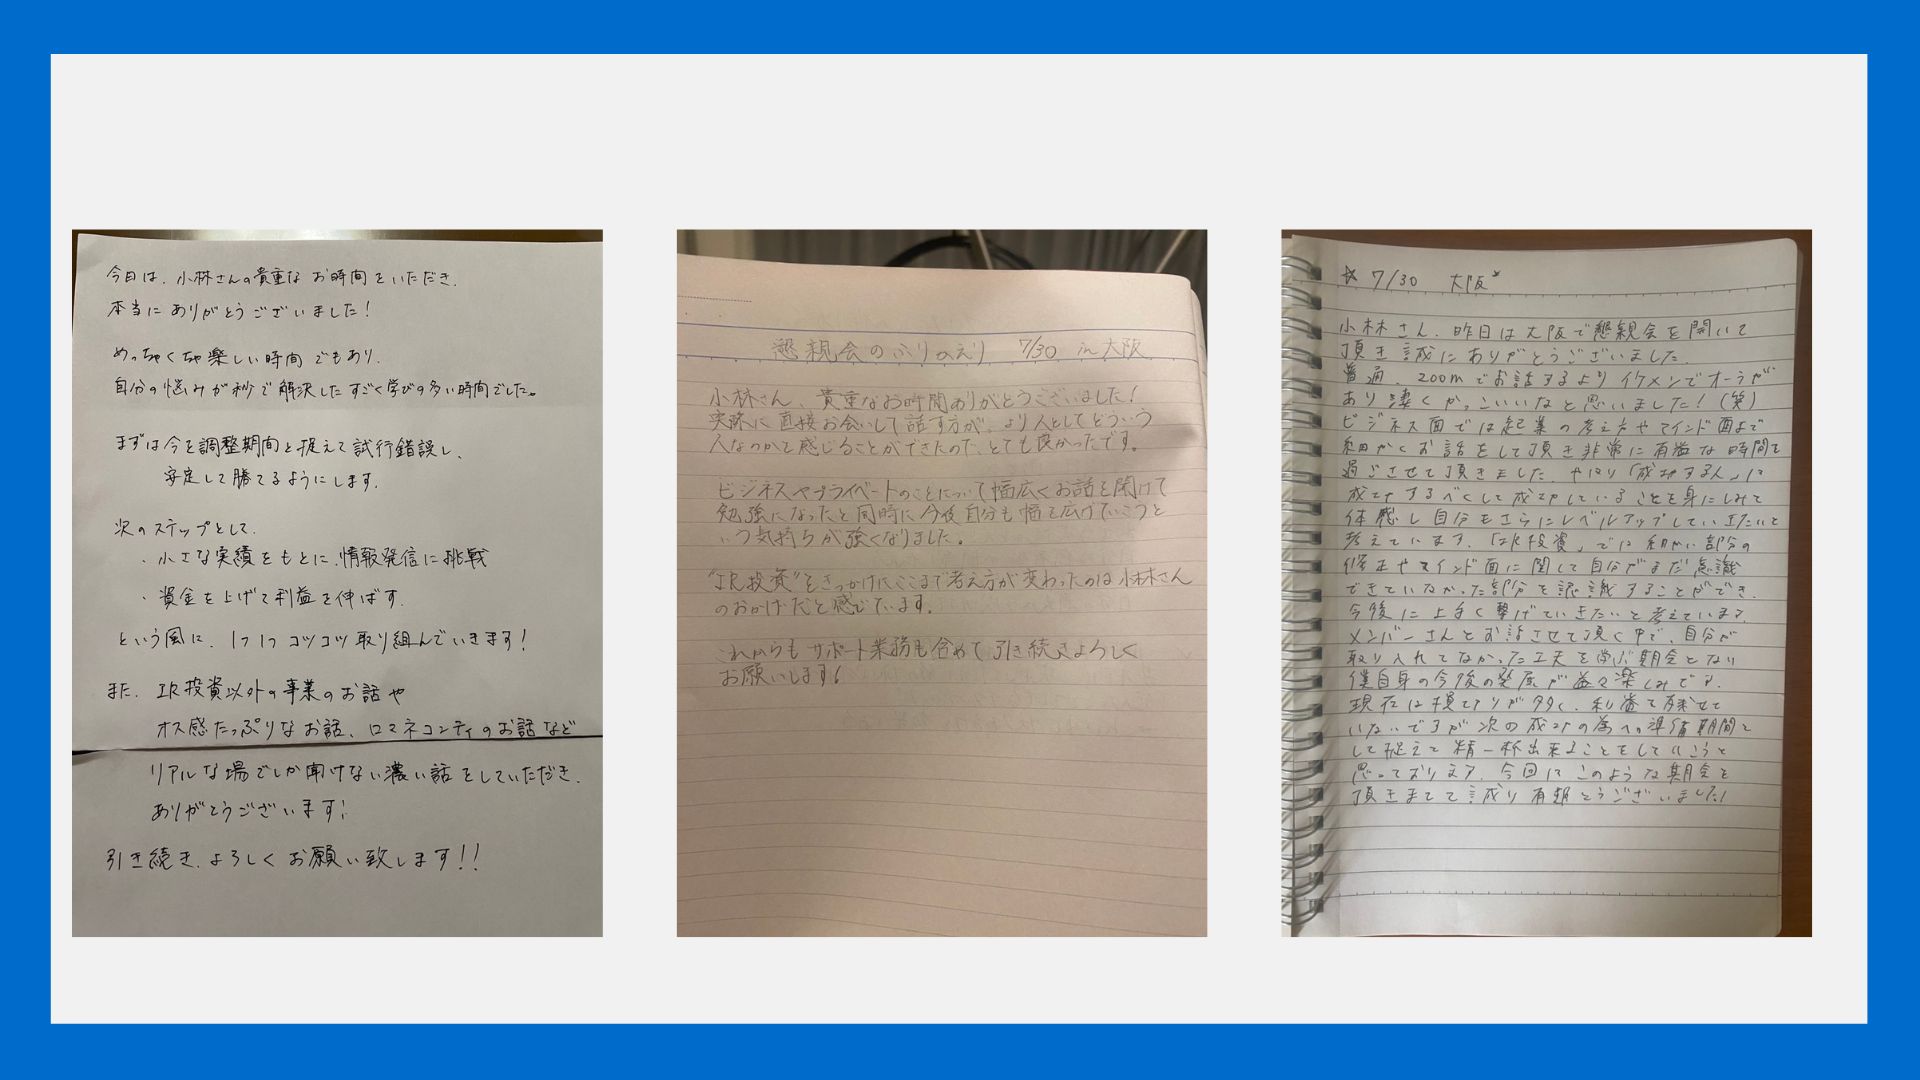 今日は、小林さんの貴重なお時間をいただき、
本当にありがとうございました!
めっちゃくちゃ楽しい時間でもあり、
自分の悩みが秒で解決したすごく学びの多い時間でした。
まずは今を調整期間と捉えて試行錯誤し、
安定して勝てるようにします。
次のステップとして、
・小さな実績をもとに、情報発信に挑戦
・資金を上げて利益を伸ばす。
という風に、1つ1つコツコツ取り組んでいきます!
また、IR投資以外の事業のお話や
オス感たっぷりなお話、ロマネコンティのお話など
リアルな場でしか聞けない濃い話をしていただき、
ありがとうございます!
引き続き、よろしくお願い致します!!
懇親会のふりかえり 7/30 in大阪
小林さん、貴重なお時間ありがとうございました!
実際に直接お会いして話す方が、より人としてどういう
人なのかを感じることができたので、とても良かったです。
ビジネスやプライベートのことについて幅広くお話を聞けて
勉強になったと同時に今後自分も幅を広げていこうと
いう気持ちが強くなりました。
"IR投資"をきっかけにここまで考え方が変わったのは小林さん
のおかげだと感じています。
これからもサポート業務も含めて引き続きよろしく
お願いします!
☆7/30 大阪*
小林さん、昨日は大阪で懇親会を開いて
頂き誠にありがとうございました。
普通、zoomでお話するよりイケメンでオーラが
あり凄くかっこいいなと思いました!(笑)
ビジネス面では起業の考え方やマインド面まで
細かくお話をして頂き非常に有益な時間を
過ごさせて頂きました。やはり「成功する人」は
成功するべくして成功していることを身にしみて
体感し自分もさらにレベルアップしていきたいと
考えています。「IR投資」では細かい部分の
修正やマインド面に関して自分がまだ意識
できていなかった部分を認識することができ、
今後に上手く繋げていきたいと考えています。
メンバーさんとお話させて頂く中で、自分が
取り入れてなかった工夫を学ぶ機会となり
僕自身の今後の発展が益々楽しみです。
現在は損切りが多く、利益を残せて
いないですが次の成功の為への準備期間と
して捉えて精一杯出来ることをしていこうと
思っております。今回はこのような機会を
頂きまして誠に有難とうございました!